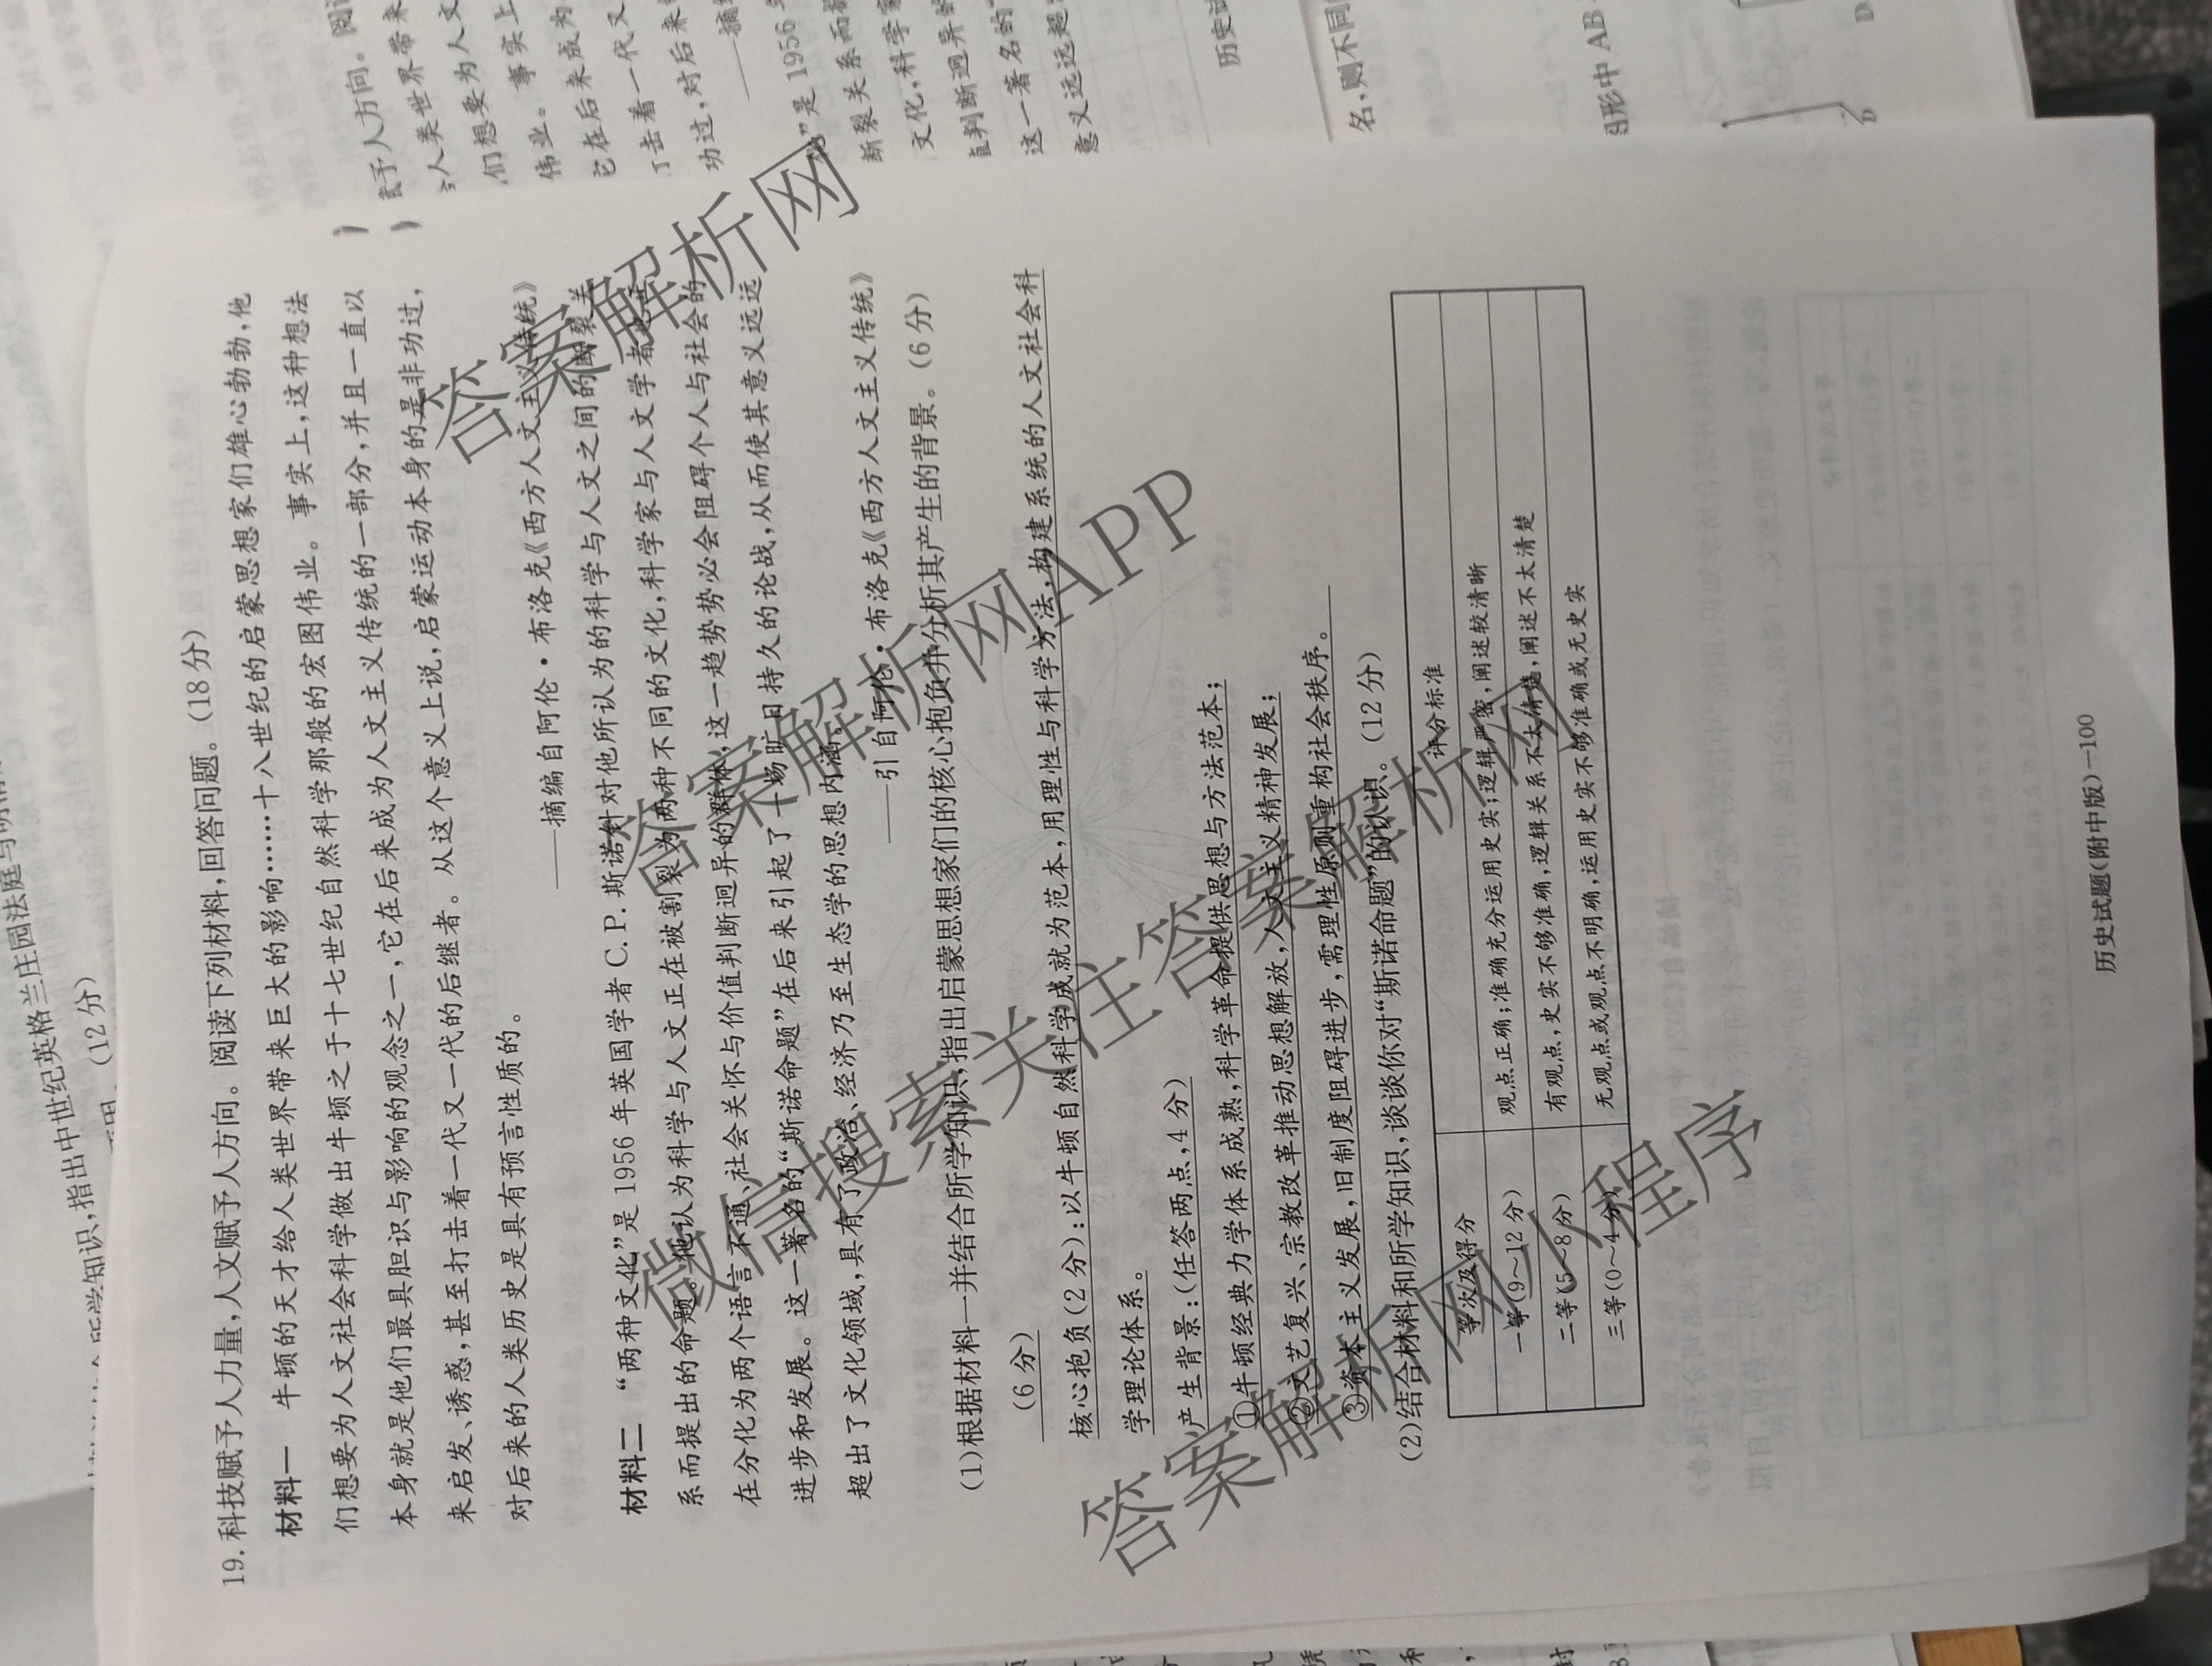 19.科技赋予人力量,人文赋予人方向。阅读下列材料,回答问题。(18分)
材料一 牛顿的天才给人类世界带来巨大的影响……十八世纪的启蒙思想家们雄心勃勃,他
们想要为人文社会科学做出牛顿之于十七世纪自然科学那般的宏图伟业。事实上,这种想法
本身就是他们最具胆识与影响的观念之一,它在后来成为人文主义传统的一部分,并且一直以
来启发、诱惑,甚至打击着一代又一代的后继者。从这个意义上说,启蒙运动本身的是非功过,
对后来的人类历史是具有预言性质的。
——摘编自阿伦·布洛克《西方人文主义传统》
材料二 “两种文化”是1956年英国学者C.P.斯诺针对他所认为的科学与人文之间的断裂关
系而提出的命题。他认为科学与人文正在被割裂为两种不同的文化,科学家与人文学者也正
在分化为两个语言不通、社会关怀与价值判断迥异的群体,这一趋势势必会阻碍个人与社会的
进步和发展。这一著名的“斯诺命题”在后来引起了一场旷日持久的论战,从而使其意义远远
超出了文化领域,具有了政治、经济乃至生态学的思想内涵。
——引自阿伦·布洛克《西方人文主义传统》
(1)根据材料一并结合所学知识,指出启蒙思想家们的核心抱负并分析其产生的背景。(6分)
(6分)
核心抱负(2分):以牛顿自然科学成就为范本,用理性与科学方法,构建系统的人文社会科
学理论体系。
产生背景:(任答两点,4分)
①牛顿经典力学体系成熟,科学革命提供思想与方法范本;
②文艺复兴、宗教改革推动思想解放,人文主义精神发展;
③资本主义发展,旧制度阻碍进步,需理性原则重构社会秩序。
(2)结合材料和所学知识,谈谈你对“斯诺命题”的认识。(12分)
等次及得分 评分标准
一等(9~12分) 观点正确;准确充分运用史实;逻辑严密,阐述较清晰
二等(5~8分) 有观点,史实不够准确,逻辑关系不太清楚,阐述不太清楚
三等(0~4分) 无观点或观点不明确,运用史实不够准确或无史实
历史试题(附中版)-100
答案解析网
答案解析网APP
微信搜索关注答案解析网
答案解析网小程序